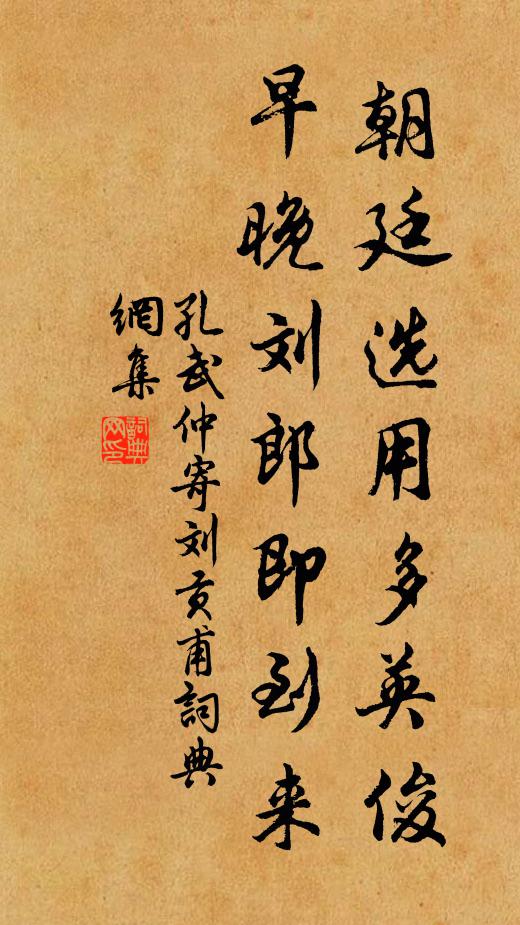 朝廷选用多英俊
早晚刘郎即到来
孔武仲寄刘贡甫詞典
網集
詞典网印